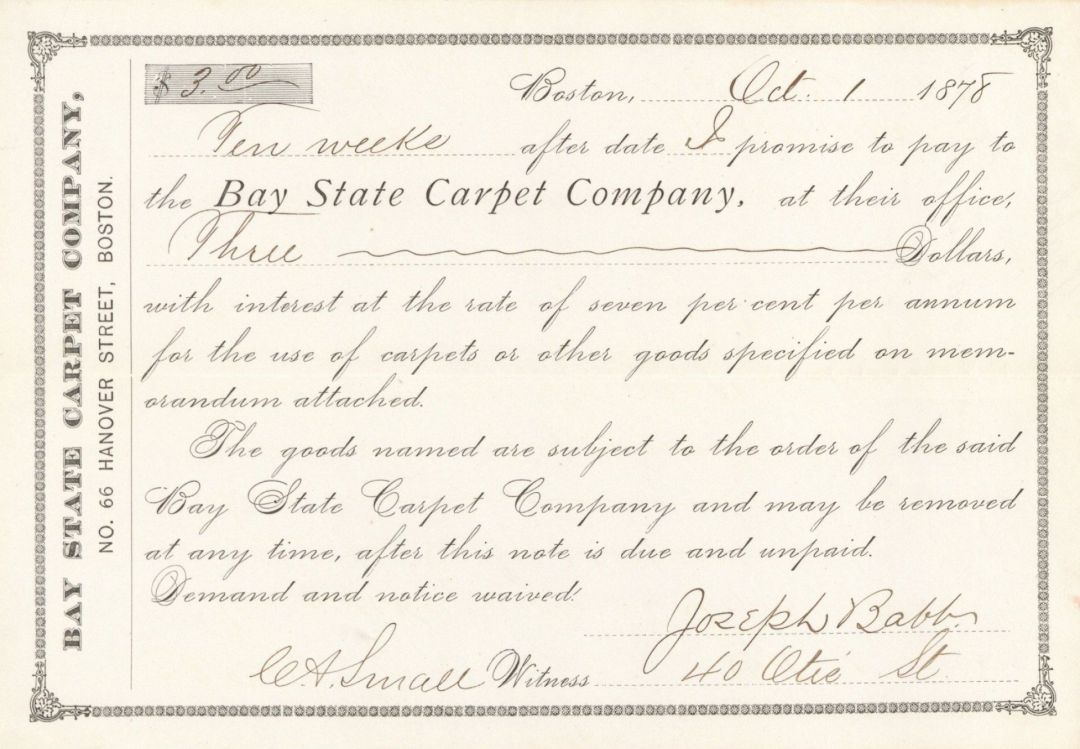 BAY STATE CARPET COMPANY,
NO. 66 HANOVER STREET, BOSTON.
$ 3.00
Boston, Oct. 1 1878
Ten weeks after date I promise to pay to
the Bay State Carpet Company, at their office,
Three Dollars,
with interest at the rate of seven per cent per annum
for the use of carpets or other goods specified on mem-
orandum attached.
The goods named are subject to the order of the said
Bay State Carpet Company and may be removed
at any time, after this note is due and unpaid.
Demand and notice waived.
Joseph Babb
C.A. Small Witness 40 Otis St